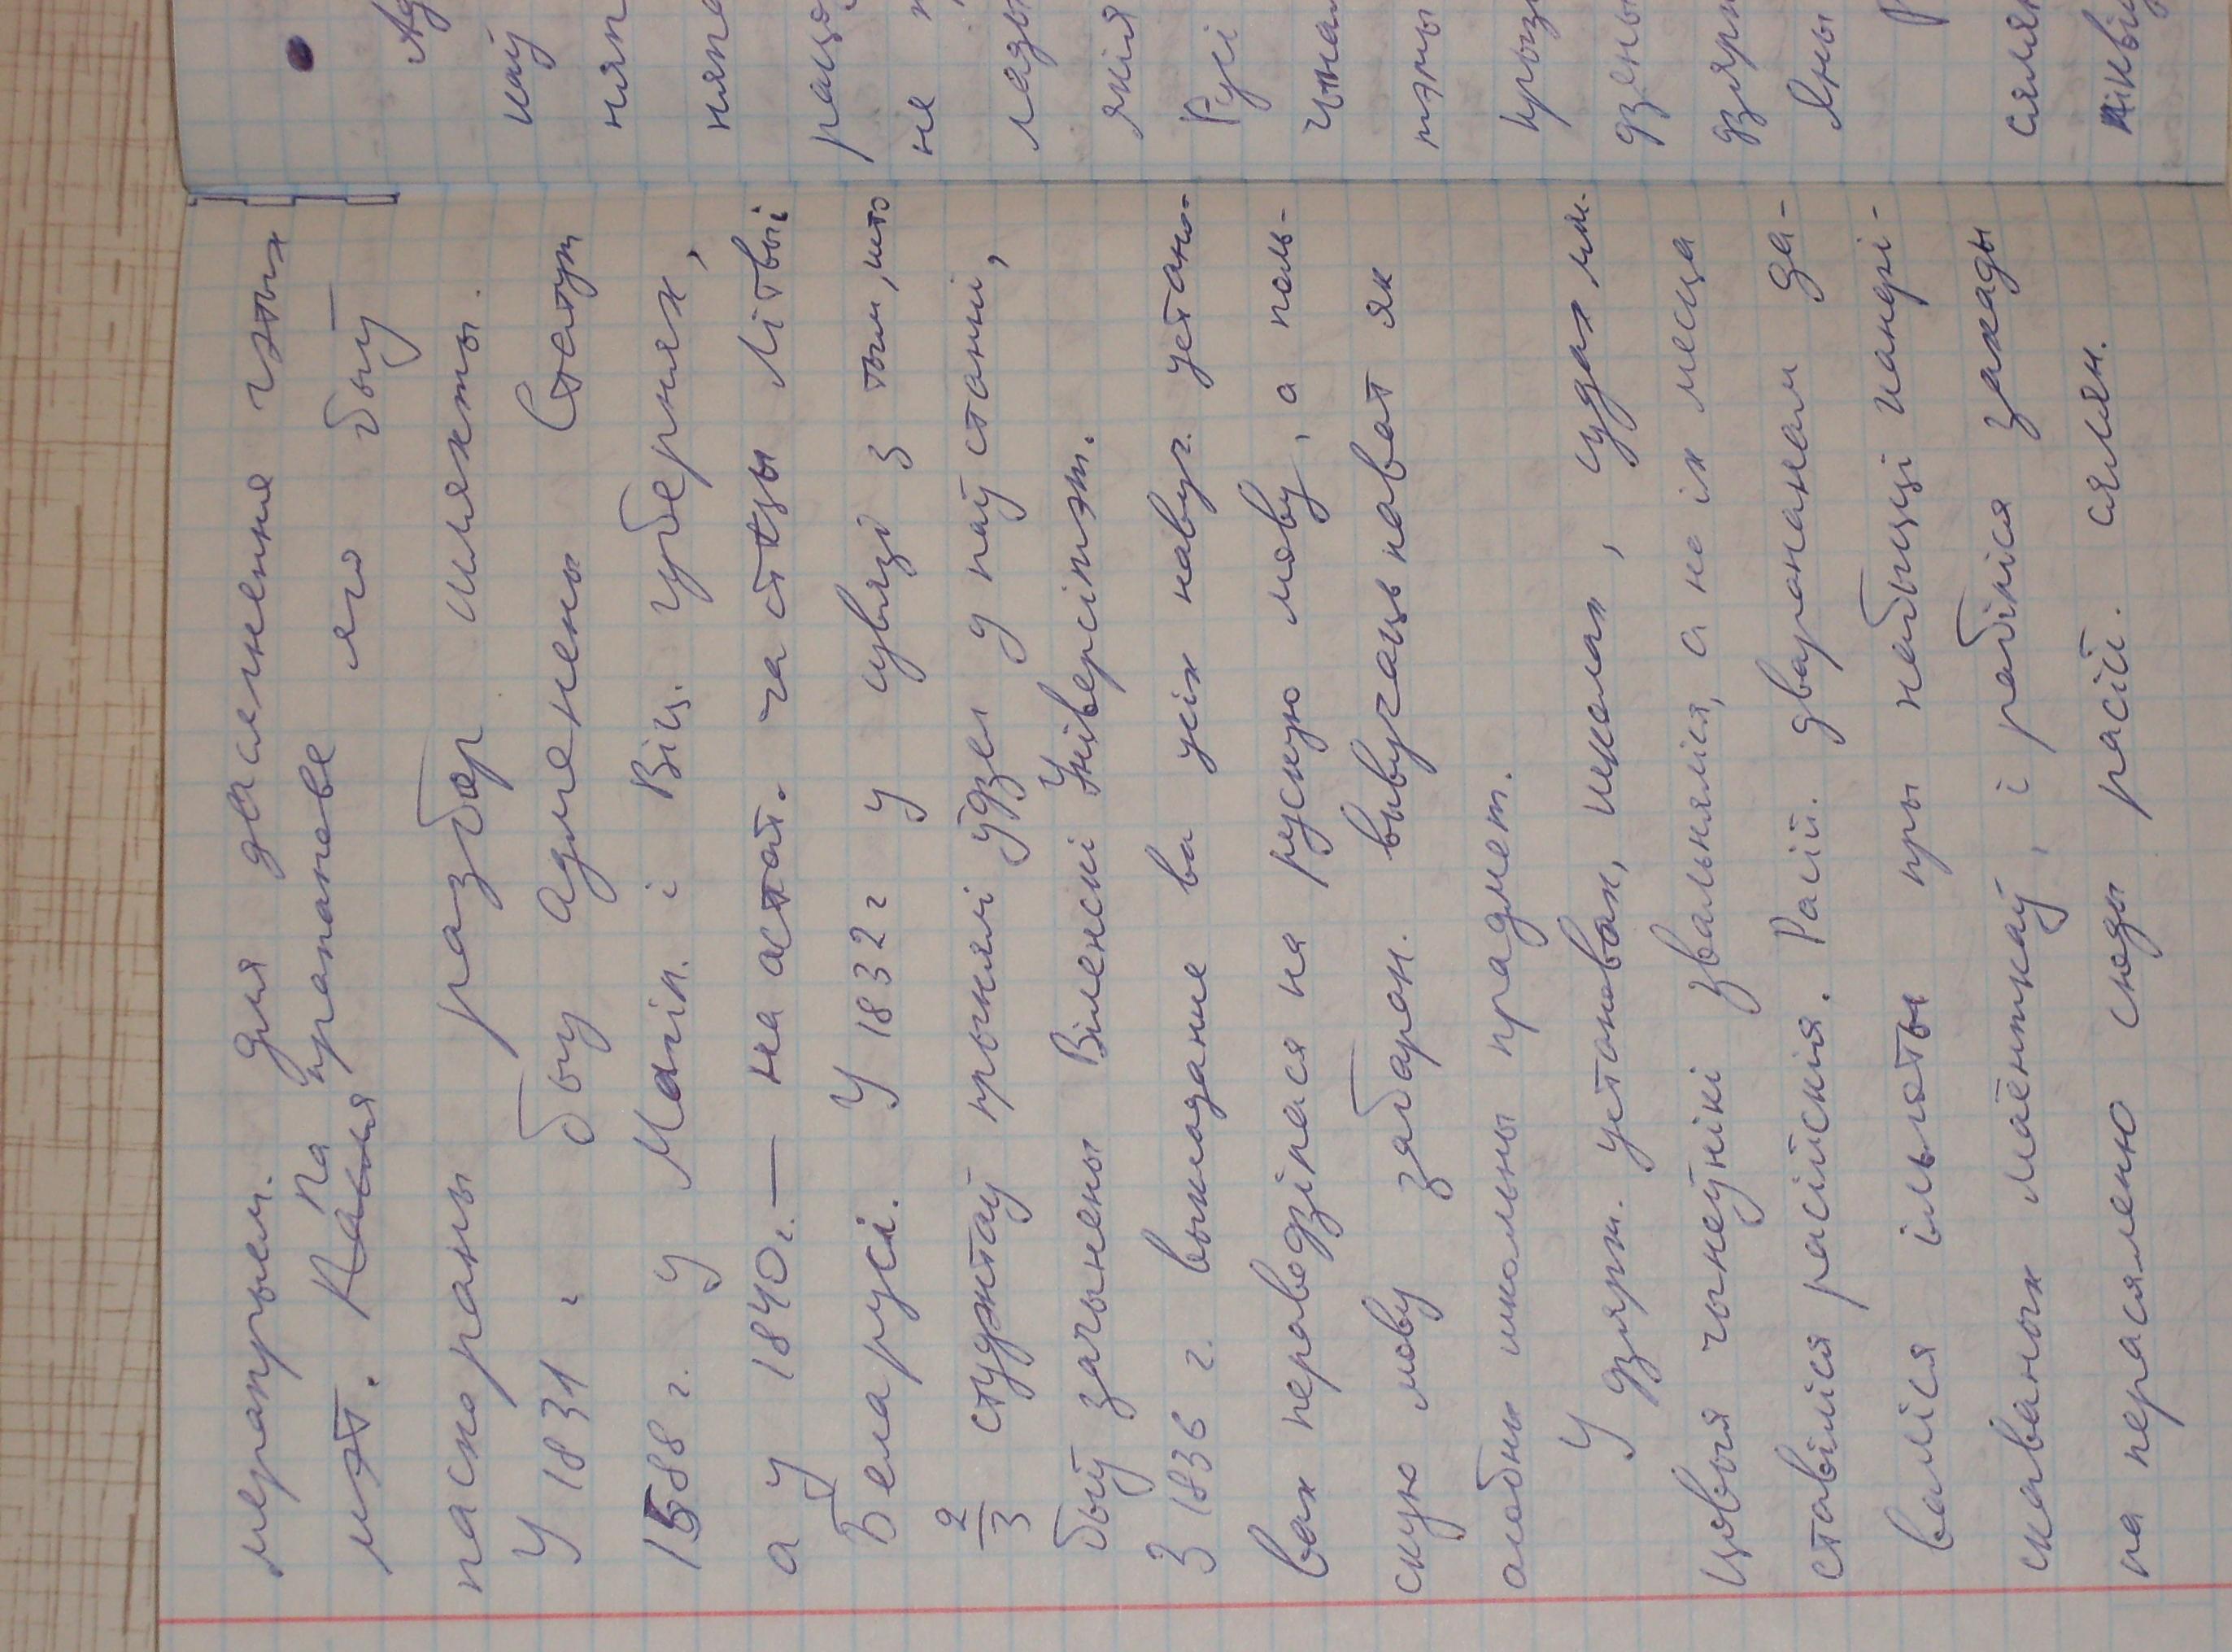 мерапрыем. для дасягнення гэтых
мэт. Пасля Па прапанове яго быў
паскораны разбор шляхты.
У 1831 г. быў адменены Статут
1588 г. у Магіл. і Віц. губернях,
а ў 1840 г. – на астат. частцы Літвы і
Беларусі. У 1832 г у сувязі з тым, што
2/3 студэнтаў прынялі ўдзел у паўстанні,
быў зачынены Віленскі Універсітэт.
З 1836 г. выкладанне ва ўсіх навуч. устано-
вах пераводзілася на рускую мову, а поль-
скую мову забаран. вывучаць нават як
асобны школьны прадмет.
У дзярж. установах, школах, судах мяс-
цовыя чыноўнікі звальняліся, а на іх месца
ставіліся расійскія. Расій. дваранам да-
валіся ільготы пры набыцці канфі-
скаваных маёнткаў, і рабіліся захады
па перасяленню сюды расій. сялян.
Ад
каў
няп
няпа
рацы
не
лады
якія
Русі
чына
тэмы
прыз
дзены
дзярж
Яны
сялян